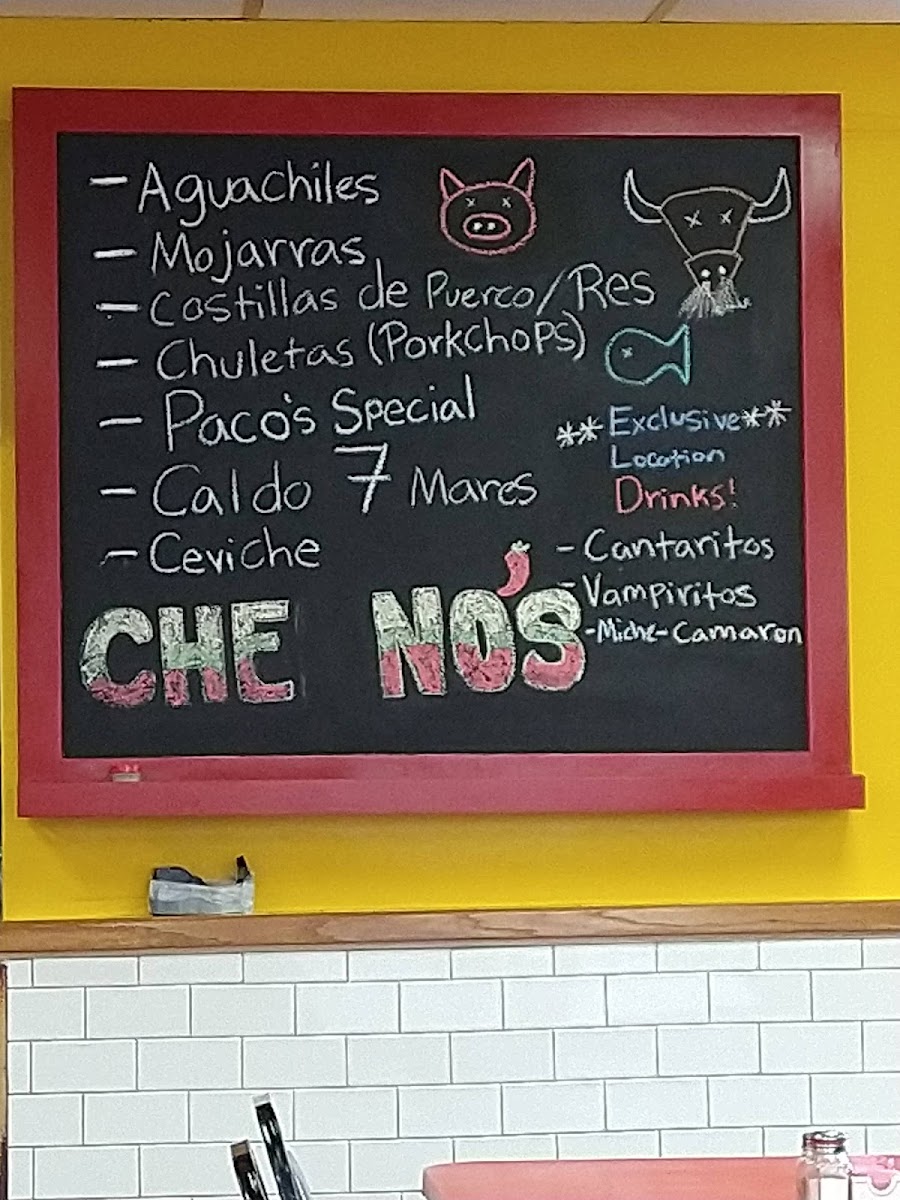 - Aguachiles
- Mojarras
- Costillas de Puerco/Res
- Chuletas (PorkChops)
- Paco's Special
- Caldo 7 Mares
- Ceviche
CHE NO'S
** Exclusive **
Location
Drinks!
- Cantaritos
- Vampiritos
- Miche-Camaron